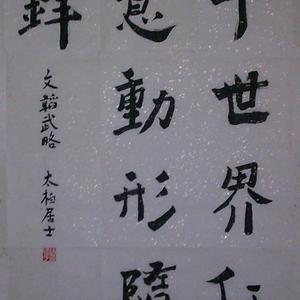 世界
意動形隨
鋒
文韜武略 太極居士